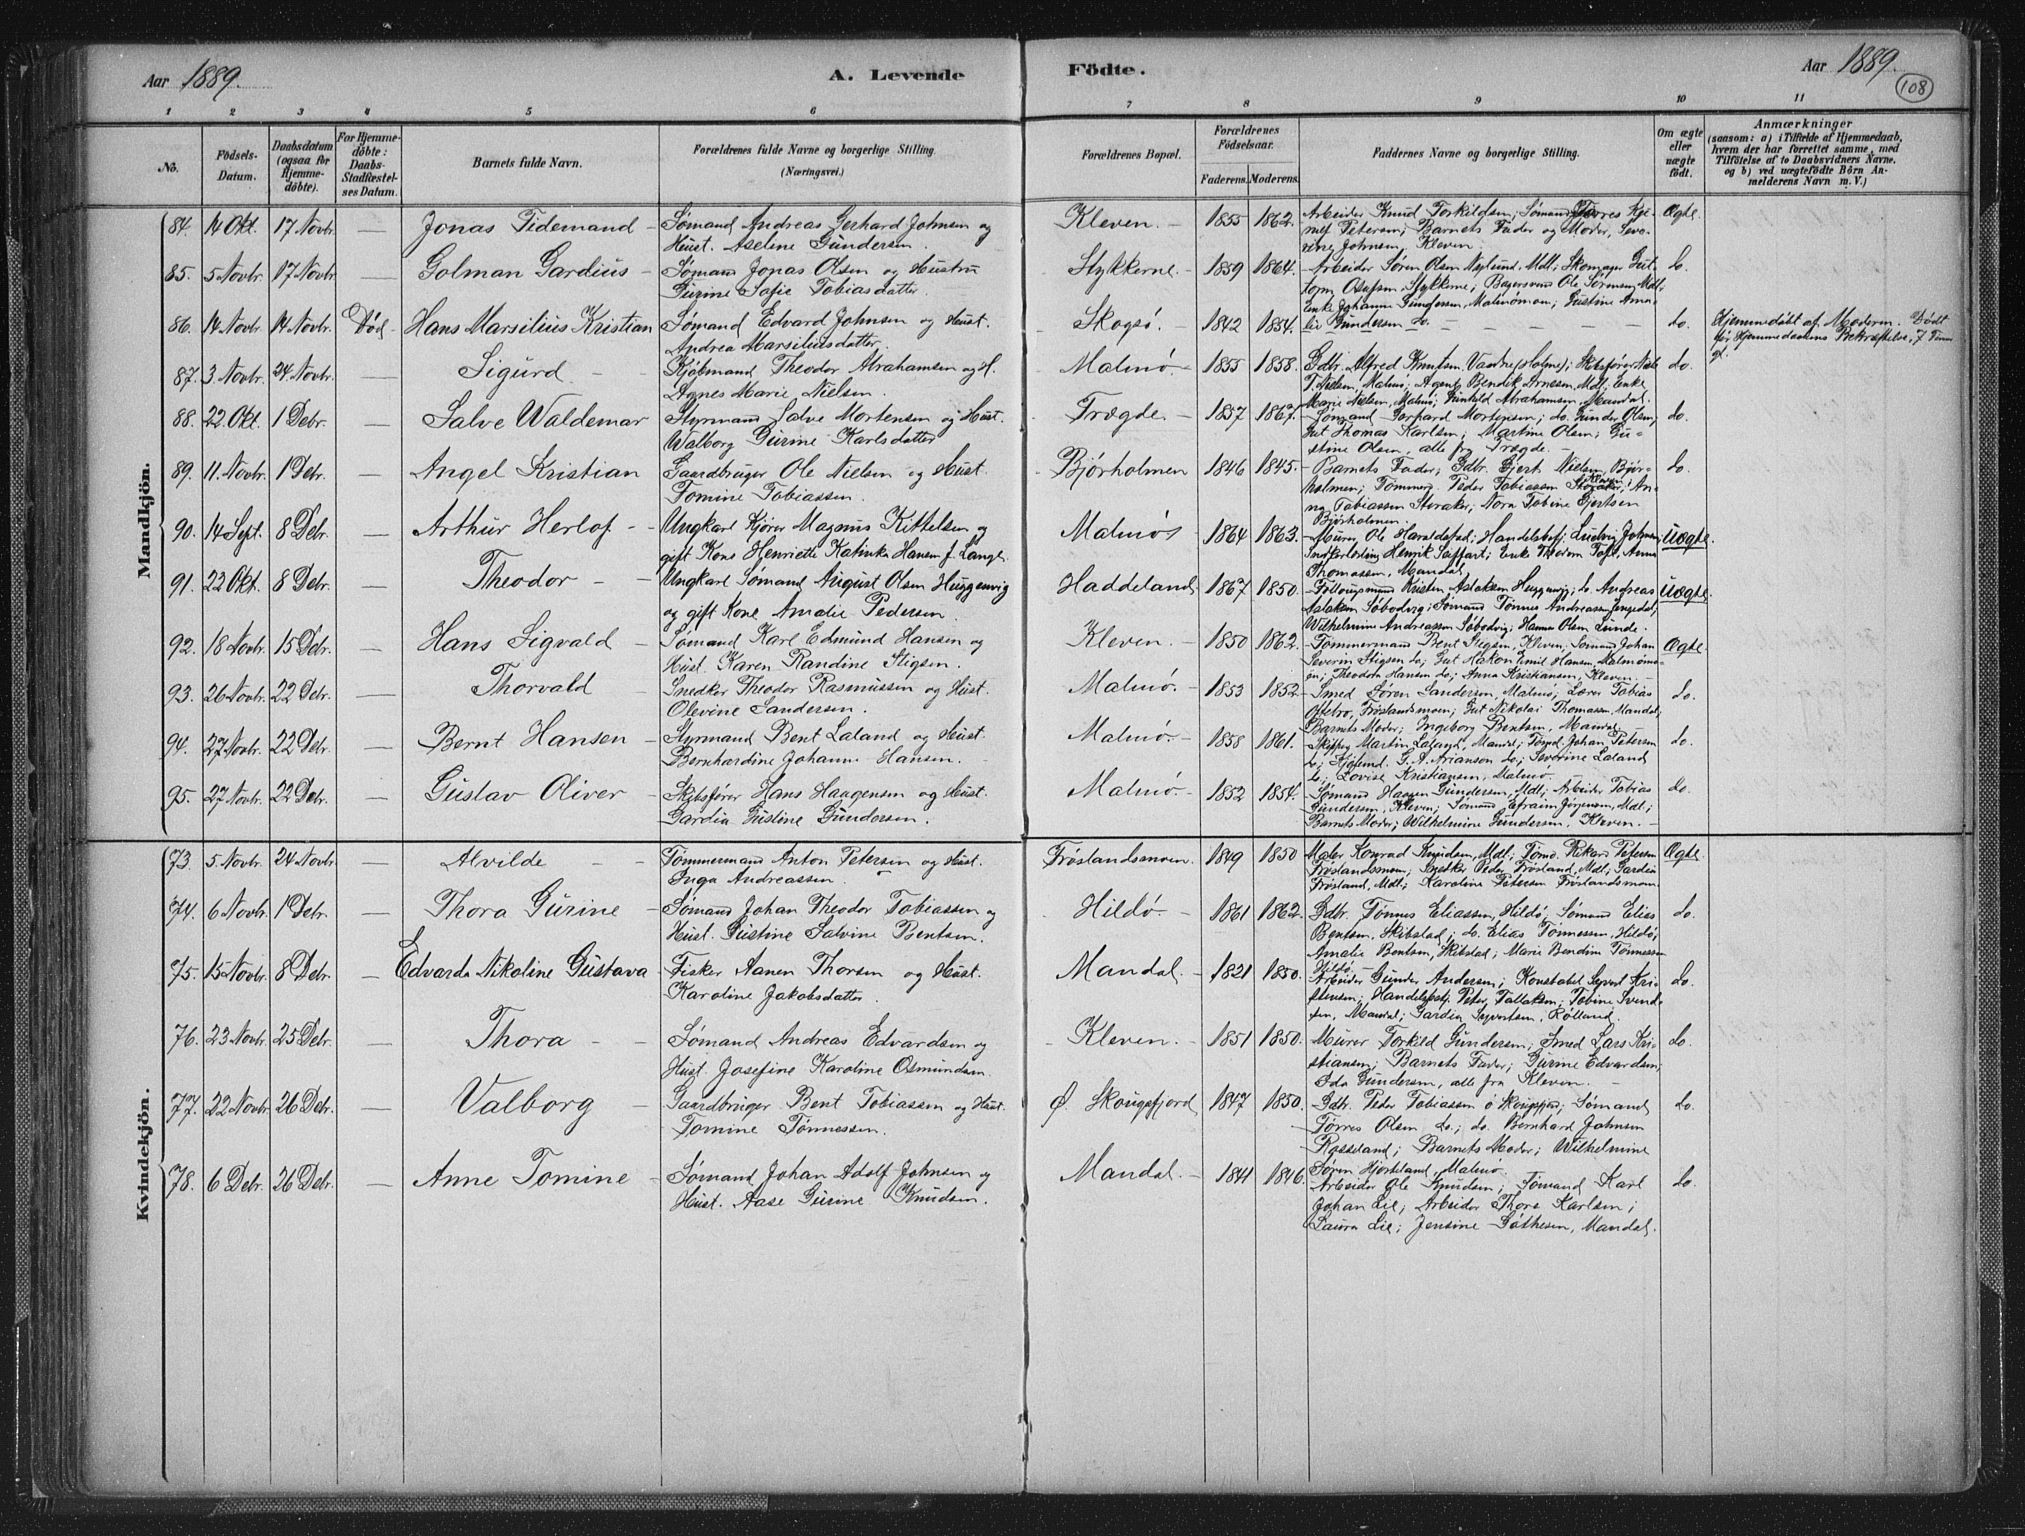 Aar 1889.
A. Levende Födte.
Aar 1889.
108
1 2 3 4 5 6 7 8 9 10 11
No.
Födsels-Datum.
Daabsdatum (ogsaa for Hjemme-döbte).
For Hjemme-döbte: Daabs-Stadfæstel-ses Datum.
Barnets fulde Navn.
Forældrenes fulde Navne og borgerlige Stilling. (Næringsvei.)
Forældrenes Bopæl.
Forældrenes Födselsaar.
Faderens. Moderens.
Faddernes Navne og borgerlige Stilling.
Om ægte eller uægte födt.
Anmærkninger
(saasom: a) i Tilfælde af Hjemmedaab, hvem der har forrettet samme, med Tilföielse af to Daabsvidners Navne. og b) ved uægtefödte Börn An-melderens Navn m. V.)
Mandkjön.
84. 14 Okt. 17 Novbr. — Jonas Tidemand — Sømand Andreas Gerhard Johnsen og
Hust. Aselene Gundersen.
Kleven. — 1855 1862. Arbeider Knud Torkildsen; Sømand Tørres
Petersen; Barnets Fader og Moder, Seve-
rine Johnsen, Kleven. Ægte.
85. 5 Novbr. 17 Novbr. — Golman Gardius — Sømand Jonas Olsen og Hustru
Gurine Sofie Tobiasdatter.
Stykkerne. — 1859 1864. Arbeider Søren Olsen Nylund, Mdl;
Olafsen, Stykkerne; Ole Sørensen, Mdl,
Enke Johanne Gundersen, Malmømoen; Gustine Ama-
lie Gundersen do. do.
86. 14 Novbr. 14 Novbr. Død Hans Marsilius Kristian Sømand Edvard Johnsen og Hust.
Andrea Marsiliusdatter.
Skogsø. — 1842 1854. do. Hjemmedøbt af Moderen. Død
før Hjemmedaabens Bekræftelse, 7 Timer
gl.
87. 3 Novbr. 24 Novbr. — Sigurd — Kjøbmand Theodor Abrahamsen og H.
Agnes Marie Nielsen.
Malmø. — 1855 1858. Gdbr. Alfred Knutsen Vaadne (Holme); Skibsfører
T. Nielsen, Malmø; Agent Bendik Arnesen, Mdl; Enke
Marie Nielsen, Malmø; Gunhild Abrahamsen, Mandal. do.
88. 22 Okt. 1 Debr. — Salve Waldemar Styrmand Salve Mortensen og Hust.
Walborg Gurine Karlsdatter
Trægde. — 1857 1867. Sømand Gerhard Mortensen; do. Gunder Olsen;
Gut Thomas Karlsen; Martine Olsen; Gu-
stine Olsen, alle fra Trægde. — do.
89. 11 Novbr. 1 Debr. — Angel Kristian Gaardbruger Ole Nielsen og Hust.
Tomine Tobiassen.
Bjørholmen 1846 1845. Barnets Fader; Gdbr. Gjert Nielsen, Bjør-
holmen; Tømmerm. Peder Tobiassen Kleven; An-
na Tobiassen Storaker; Nora Tobine Gjertsen
Bjørholmen. do.
90. 14 Sept. 8 Debr. Arthur Herlof — Ungkarl Kjører Magnus Kittelsen og
gift Kone Henriette Katinka Hansen f. Lange.
Malmø 1864 1863. Murer Ole Haraldstad; Handelsbetj. Ludvig Johnsen,
Henrik Seiffart; Enke Thedora Toft, Anna
Thomassen, Mandal, Uægte.
91. 22 Okt. 8 Debr. — Theodor — Ungkarl Sømand August Olsen Huggenvig
og gift Kone Amalie Pedersen.
Haddeland 1867 1850. Kristen Aslaksen Huggenvig; do. Andreas
Aslaksen Søbodvig; Sømand Tønnes Andreassen
Wilhelmine Andreassen Søbodvig; Hanna Olsen Lunde. Uægte.
92. 18 Novbr. 15 Debr. — Hans Sigvald — Sømand Karl Edmund Hansen og
Hust. Karen Randine Stigsen.
Kleven. — 1850 1862. Tømmermand Bent Stigsen, Kleven; Sømand Johan
Severin Stigsen do; Gut Hakon Emil Hansen, Malmømo-
en; Theodora Hansen do; Anna Kristiansen, Kleven. — Ægte.
93. 26 Novbr. 22 Debr. — Thorvald Snedker Theodor Rasmussen og Hust.
Olevine Sandersen.
Malmø. — 1853 1852. Smed Søren Sandersen, Malmø; Lærer Tobias
Frøslandsmoen; Gut Nikolai Thomassen, Mandal;
Barnets Moder; Ingeborg Bentsen, Mandal. do.
94. 27 Novbr. 22 Debr. — Bernt Hansen — Styrmand Bent Laland og Hust.
Bernhardine Johanne Hansen.
Malmø. — 1858 1861. Skipper Martin Laland, Mandal; Tømd. Johan Petersen
do; Kjøbmd. G. A. Arianson do; Severine Laland
do; Lovise Kristiansen, Malmø. do.
95. 27 Novbr. 22 Debr. — Gustav Oliver — Skibsfører Hans Haagensen og Hust.
Gardia Gustine Gundersen.
Malmø. — 1852 1854. Sømand Haagen Gundersen, Mdl; Arbeider Tobias
Gundersen, Kleven; Sømand Efraim Jørgensen, Mdl;
Barnets Moder; Wilhelmine Gundersen, Kleven. — do.
Kvindekjön.
73. 5 Novbr. 24 Novbr. — Alvilde — Tømmermand Anton Petersen og Hust.
Inga Andreassen.
Frøslandsmoen. 1849 1850 Maler Konrad Knudsen, Mdl; Tømd. Rikard Petersen
Frøslandsmoen; Snedker Peder Frøsland, Mdl; Gardia
Frøsland, Mdl; Karoline Petersen Frøslandsmoen Ægte.
74. 6 Novbr. 1 Debr. — Thora Gurine — Sømand Johan Theodor Tobiassen og
Hust. Gustine Salvine Bentsen.
Hildø. — 1861 1862. Gdbr. Tønnes Eliassen, Hildø; Sømand Elias
Bentsen, Skibstad; do. Elias Tønnessen, Hildø;
Amalie Bentsen, Skibstad; Marie Bendine Tønnessen
Hildø. — do.
75. 15 Novbr. 8 Debr. — Edvarda Nikoline Gustava Fisker Aanen Thorsen og Hust.
Karoline Jakobsdatter.
Mandal. — 1821 1850. Arbeider Gunder Andersen; Konstabel Syvert Kri-
stensen; Handelsbetj. Peter Tallaksen; Tobine Svend-
sen, Mandal; Gardia Syvertsen, Rølland. do.
76. 23 Novbr. 25 Debr. — Thora — Sømand Andreas Edvardsen og
Hust. Josefine Karoline Osmundsen.
Kleven. — 1851 1850. Murer Torkild Gundersen; Smed Lars Kri-
stiansen; Barnets Fader; Gurine Edvardsen;
Ida Gundersen, alle fra Kleven. — do.
77. 22 Novbr. 26 Debr. — Valborg — Gaardbruger Bent Tobiassen og Hust.
Tomine Tønnessen.
Ø. Skougsfjord 1847 1850. Gdbr. Peder Tobiassen ø Skougsfjord; Sømand
Tørres Olsen do.; do. Bernhard Johnsen
Rosseland; Barnets Moder; Wilhelmine
Søren Hjorteland, Malmø. do.
78. 6 Debr. 26 Debr. — Anne Tomine — Sømand Johan Adolf Johnsen og
Hust. Aase Gurine Knudsen.
Mandal. — 1841 1846. Arbeider Ole Knudsen; Sømand Karl
Johan Lie; Arbeider Thore Karlsen;
Laura Lie; Jensine Gøthesen, Mandal. do.